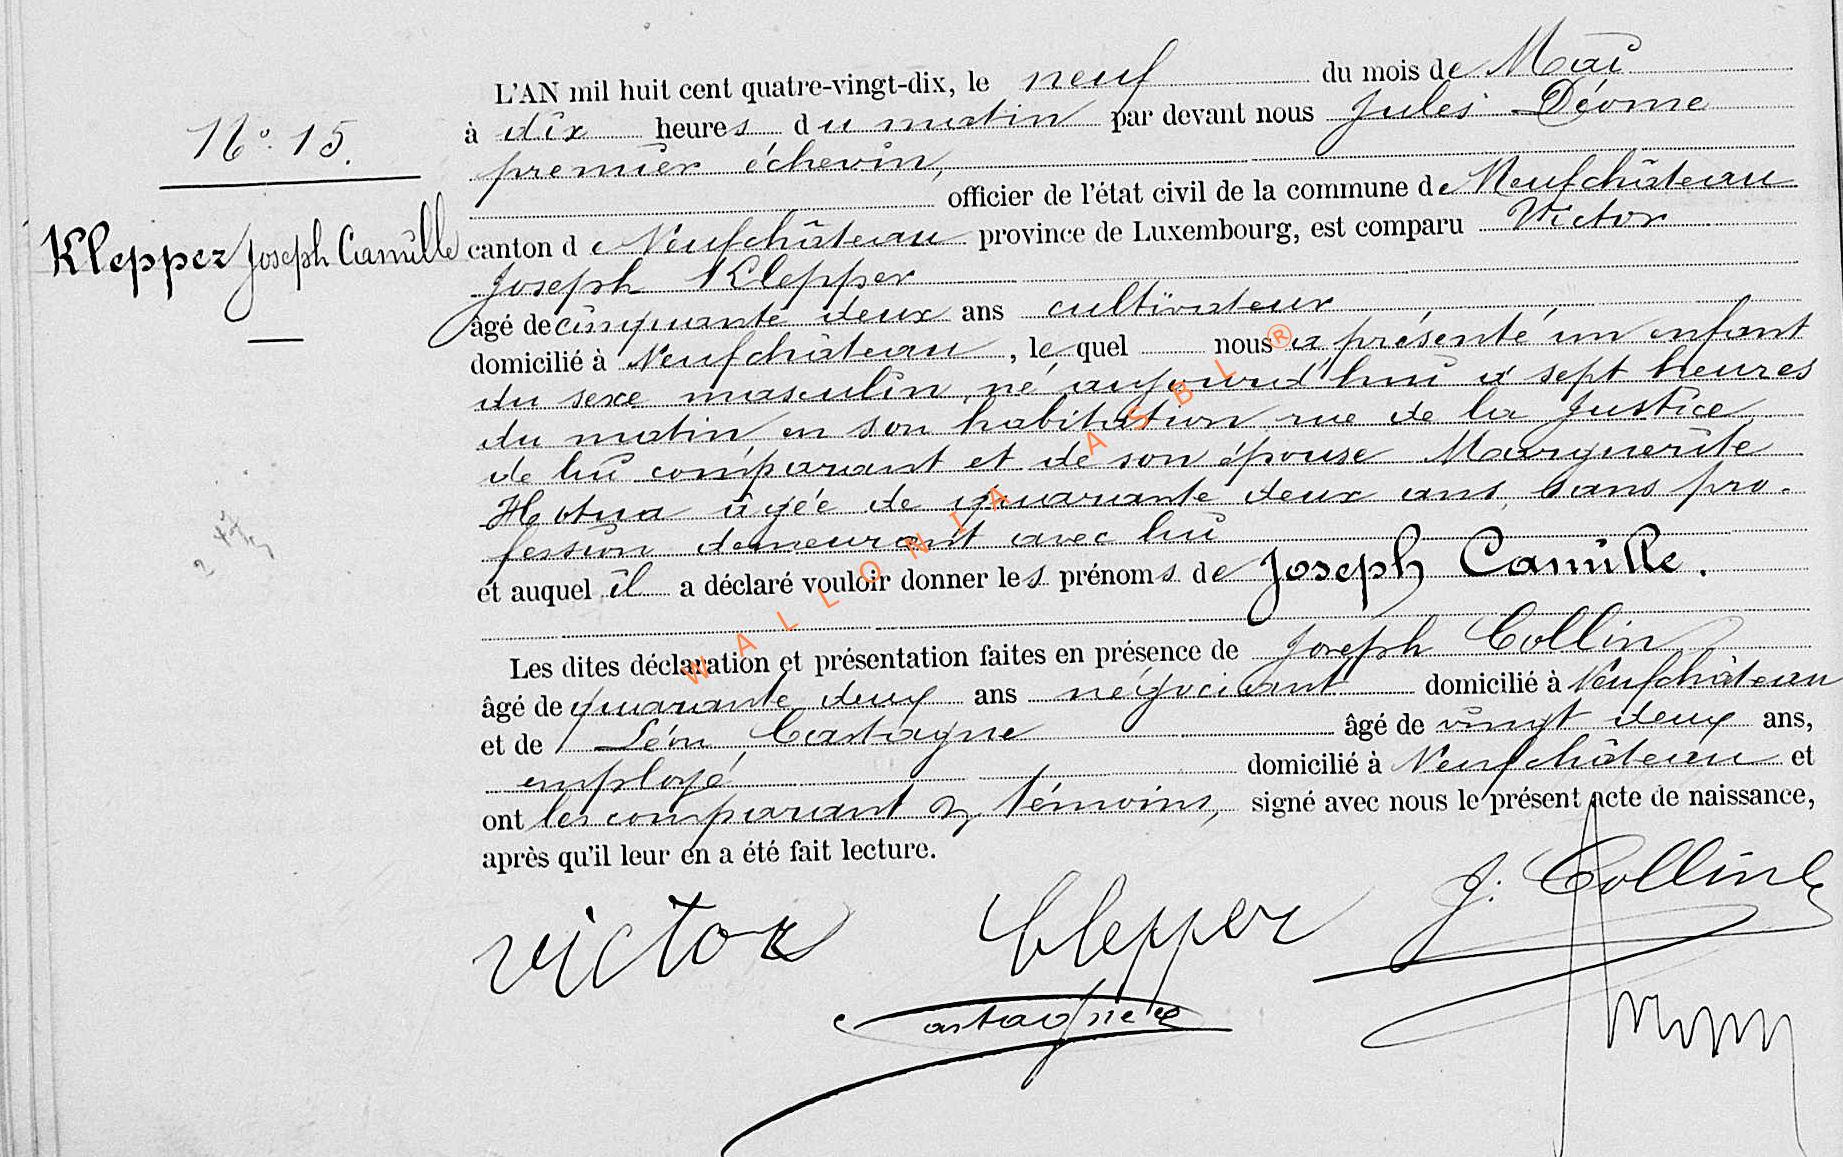 N° 15.
Klepper Joseph Camille
L'AN mil huit cent quatre-vingt-dix, le neuf du mois de Mai
à dix heures du matin par devant nous Jules Déome
premier échevin,
officier de l'état civil de la commune de Neufchâteau
canton de Neufchâteau province de Luxembourg, est comparu Victor
Joseph Klepper
âgé de cinquante deux ans cultivateur
domicilié à Neufchâteau, lequel nous a présenté un enfant
du sexe masculin, né aujourd'hui à sept heures
du matin en son habitation rue de la Justice
de lui comparant et de son épouse Marguerite
Hotua âgée de quarante deux ans, sans pro-
fession demeurant avec lui
et auquel il a déclaré vouloir donner les prénoms de Joseph Camille.
Les dites déclaration et présentation faites en présence de Joseph Collin
âgé de quarante deux ans négociant domicilié à Neufchâteau
et de Léon Castagne âgé de vingt deux ans,
employé domicilié à Neufchâteau et
ont les comparant & témoins, signé avec nous le présent acte de naissance,
après qu'il leur en a été fait lecture.
victor klepper J. Collin
Castagne
WALLONIA ASBL ®